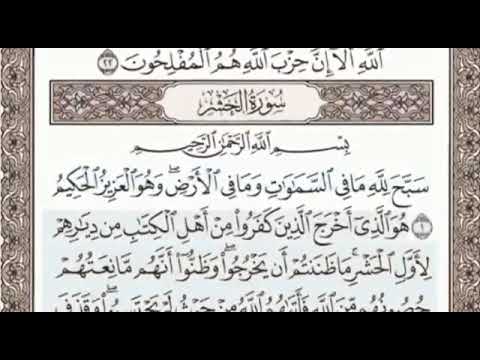 ٱللَّهِ أَلَآ إِنَّ حِزْبَ ٱللَّهِ هُمُ ٱلْمُفْلِحُونَ ٢٢
سُورَةُ الحَشْرِ
بِسْمِ ٱللَّهِ ٱلرَّحْمَٰنِ ٱلرَّحِيمِ
سَبَّحَ لِلَّهِ مَا فِي ٱلسَّمَٰوَٰتِ وَمَا فِي ٱلْأَرْضِۖ وَهُوَ ٱلْعَزِيزُ ٱلْحَكِيمُ
١ هُوَ ٱلَّذِيٓ أَخْرَجَ ٱلَّذِينَ كَفَرُوا۟ مِنْ أَهْلِ ٱلْكِتَٰبِ مِن دِيَٰرِهِمْ
لِأَوَّلِ ٱلْحَشْرِۚ مَا ظَنَنتُمْ أَن يَخْرُجُوا۟ۖ وَظَنُّوٓا۟ أَنَّهُم مَّانِعَتُهُمْ
حُصُونُهُم مِّنَ ٱللَّهِ فَأَتَىٰهُمُ ٱللَّهُ مِنْ حَيْثُ لَمْ يَحْتَسِبُوا۟ۖ وَقَذَفَ